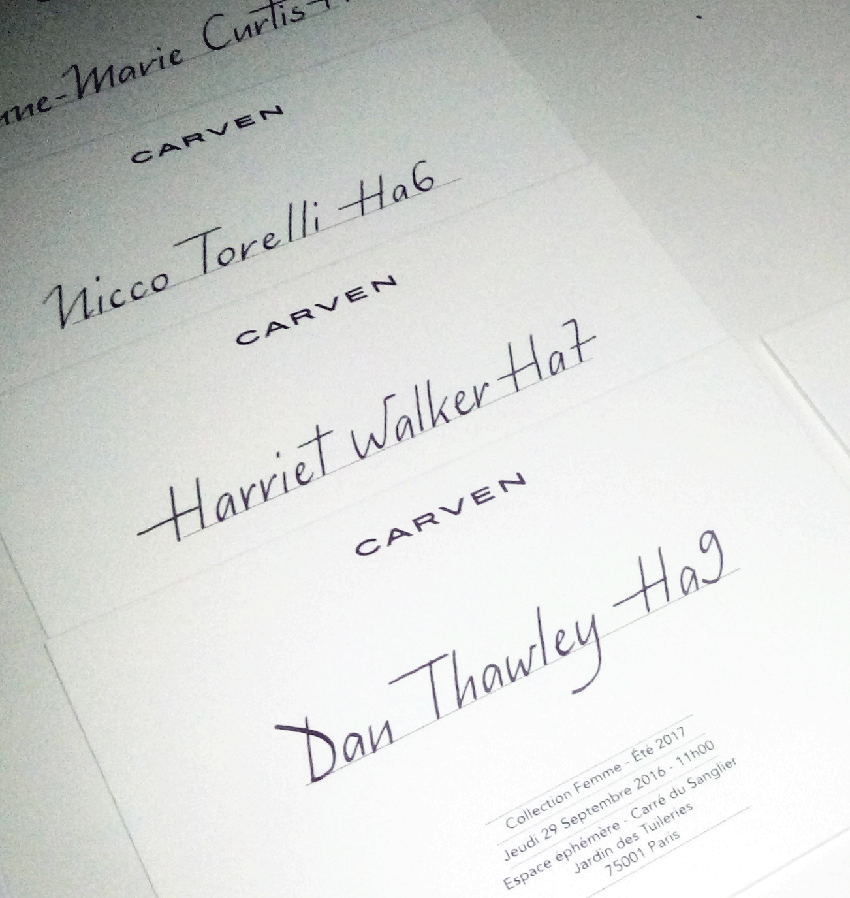 Marie Curtis
CARVEN
Nicco Torelli Ha6
CARVEN
Harriet Walker Ha7
CARVEN
Dan Thawley Ha9
Collection Femme - Été 2017
Jeudi 29 Septembre 2016 - 11h00
Espace éphémère - Carré du Sanglier
Jardin des Tuileries
75001 Paris